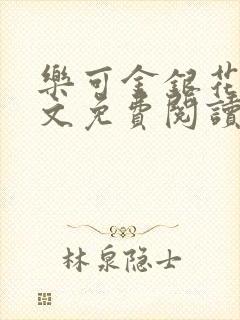 樂可金銀花
文免費閱讀
林泉隐士